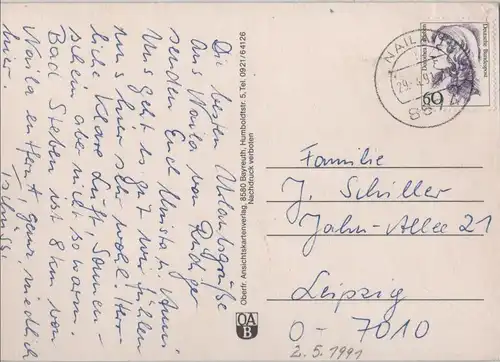 Die besten Urlaubsgrüße
aus Naila von Rüdige
senden Euch Christa u. Anni
Uns geht es gut wir fühlen
uns hier sehr wohl. Herr
liche klare Luft, Sonnen-
schein aber nicht so warm.
Bad Steben ist 8 km von
Naila entfernt, ganz niedlich
hier.
Tschüss!
Oberfr. Ansichtskartenverlag, 8580 Bayreuth, Humboldtstr. 5, Tel. 0921/64126
Nachdruck verboten
OA
B
Deutsche Bundespost
60
NAILA
Familie
J. Schiller
Jahn-Allee 21
Leipzig
O-7010
2.5.1991